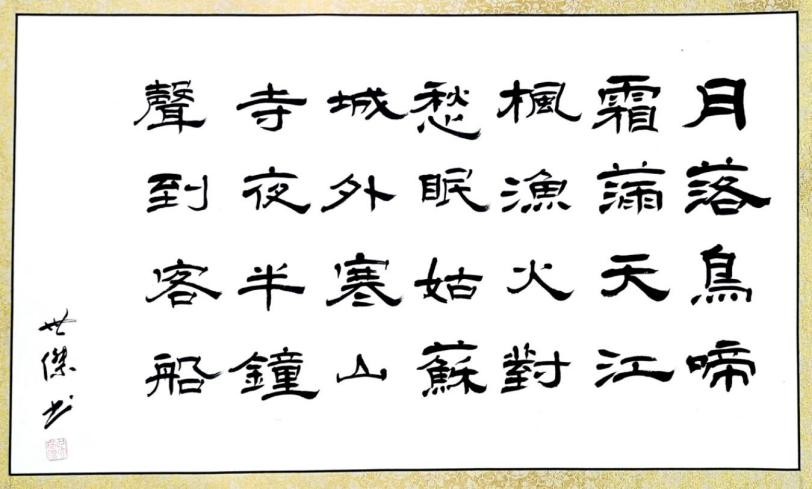 月落鳥啼
霜滿天江
楓漁火對
愁眠姑蘇
城外寒山
寺夜半鐘
聲到客船
世傑书